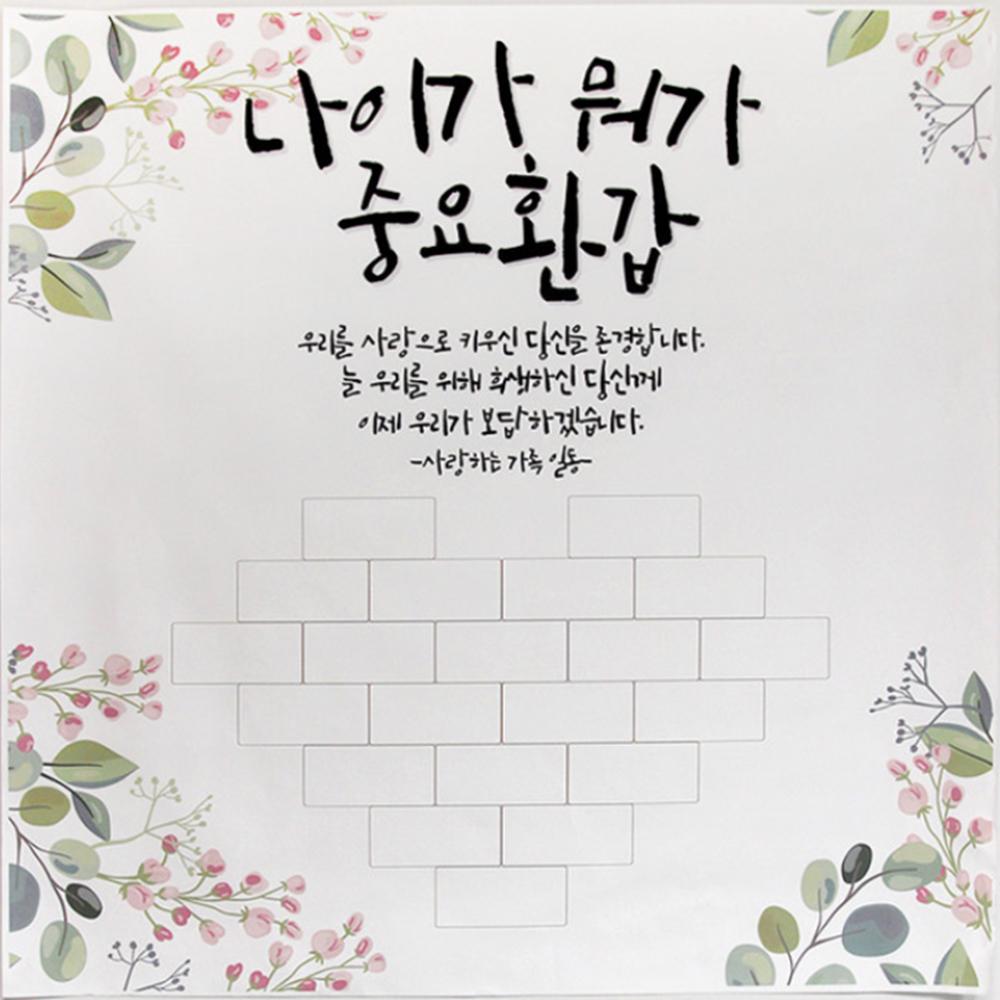 나이가 뭐가
중요환갑
우리를 사랑으로 키우신 당신을 존경합니다.
늘 우리를 위해 희생하신 당신께
이제 우리가 보답하겠습니다.
-사랑하는 가족 일동-